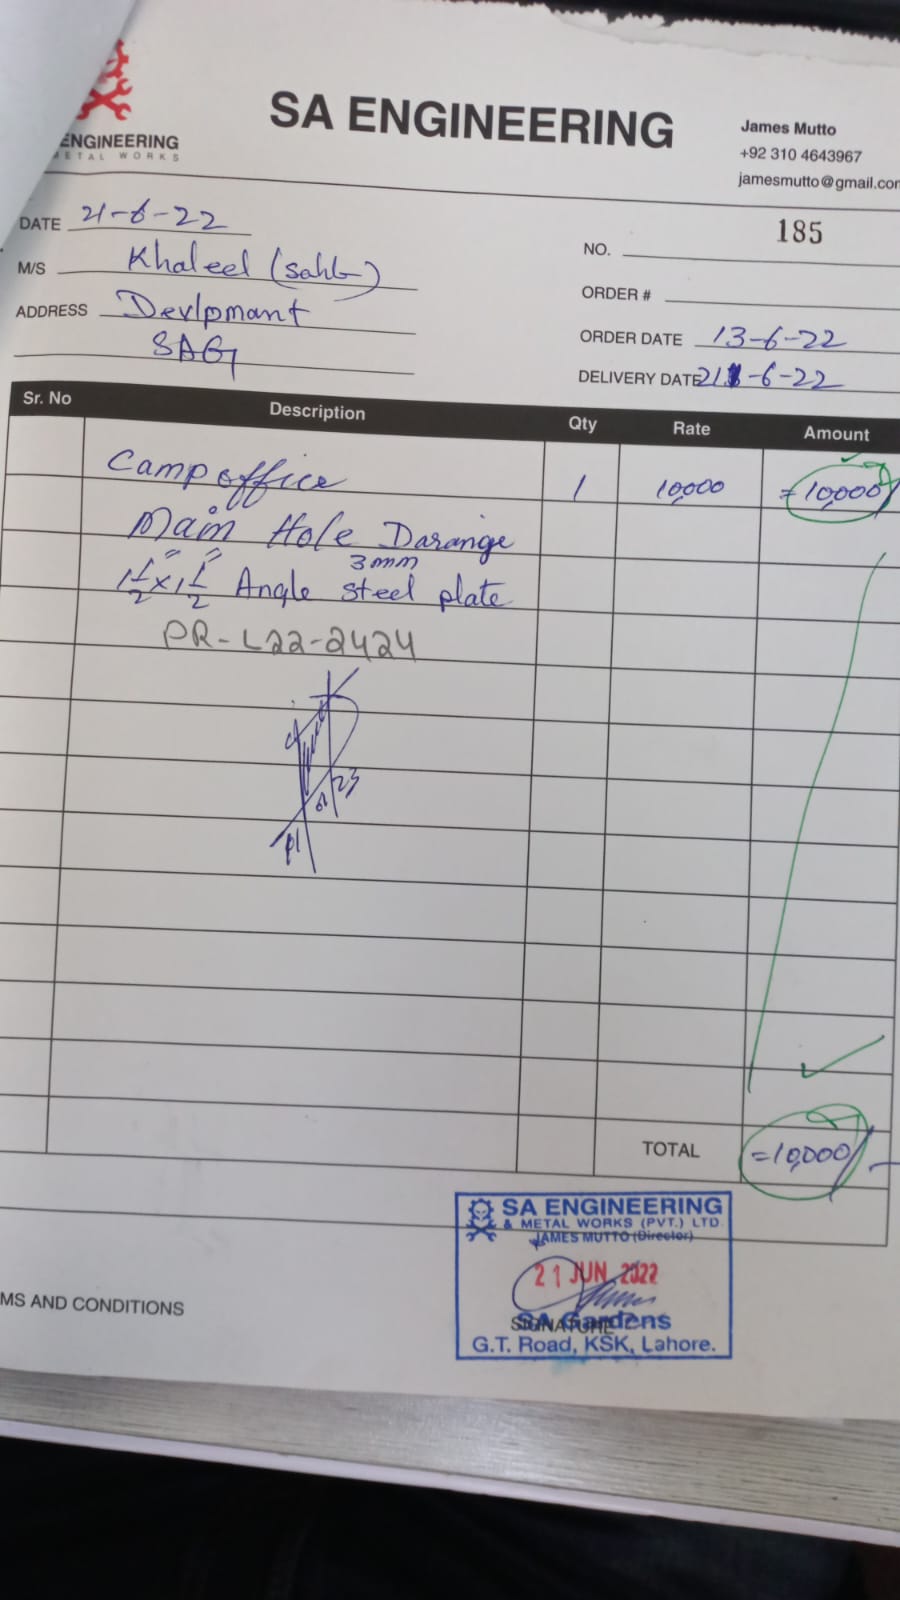 ENGINEERING
METAL WORKS
SA ENGINEERING
James Mutto
+92 310 4643967
jamesmutto@gmail.com
DATE 21-6-22
M/S Khaleel (sahb)
ADDRESS Devlpmant
SAG
NO. 185
ORDER #
ORDER DATE 13-6-22
DELIVERY DATE 21-6-22
Sr. No Description Qty Rate Amount
Camp office 1 10,000 =10,000/
Main Hole Darange
3mm
1 1/2" x 1 1/2" Angle Steel plate
PR-L22-2424
TOTAL =10,000/-
SA ENGINEERING
& METAL WORKS (PVT.) LTD
JAMES MUTTO (Director)
21 JUN 2022
SIGNATURE
SA Gardens
G.T. Road, KSK, Lahore.
MS AND CONDITIONS